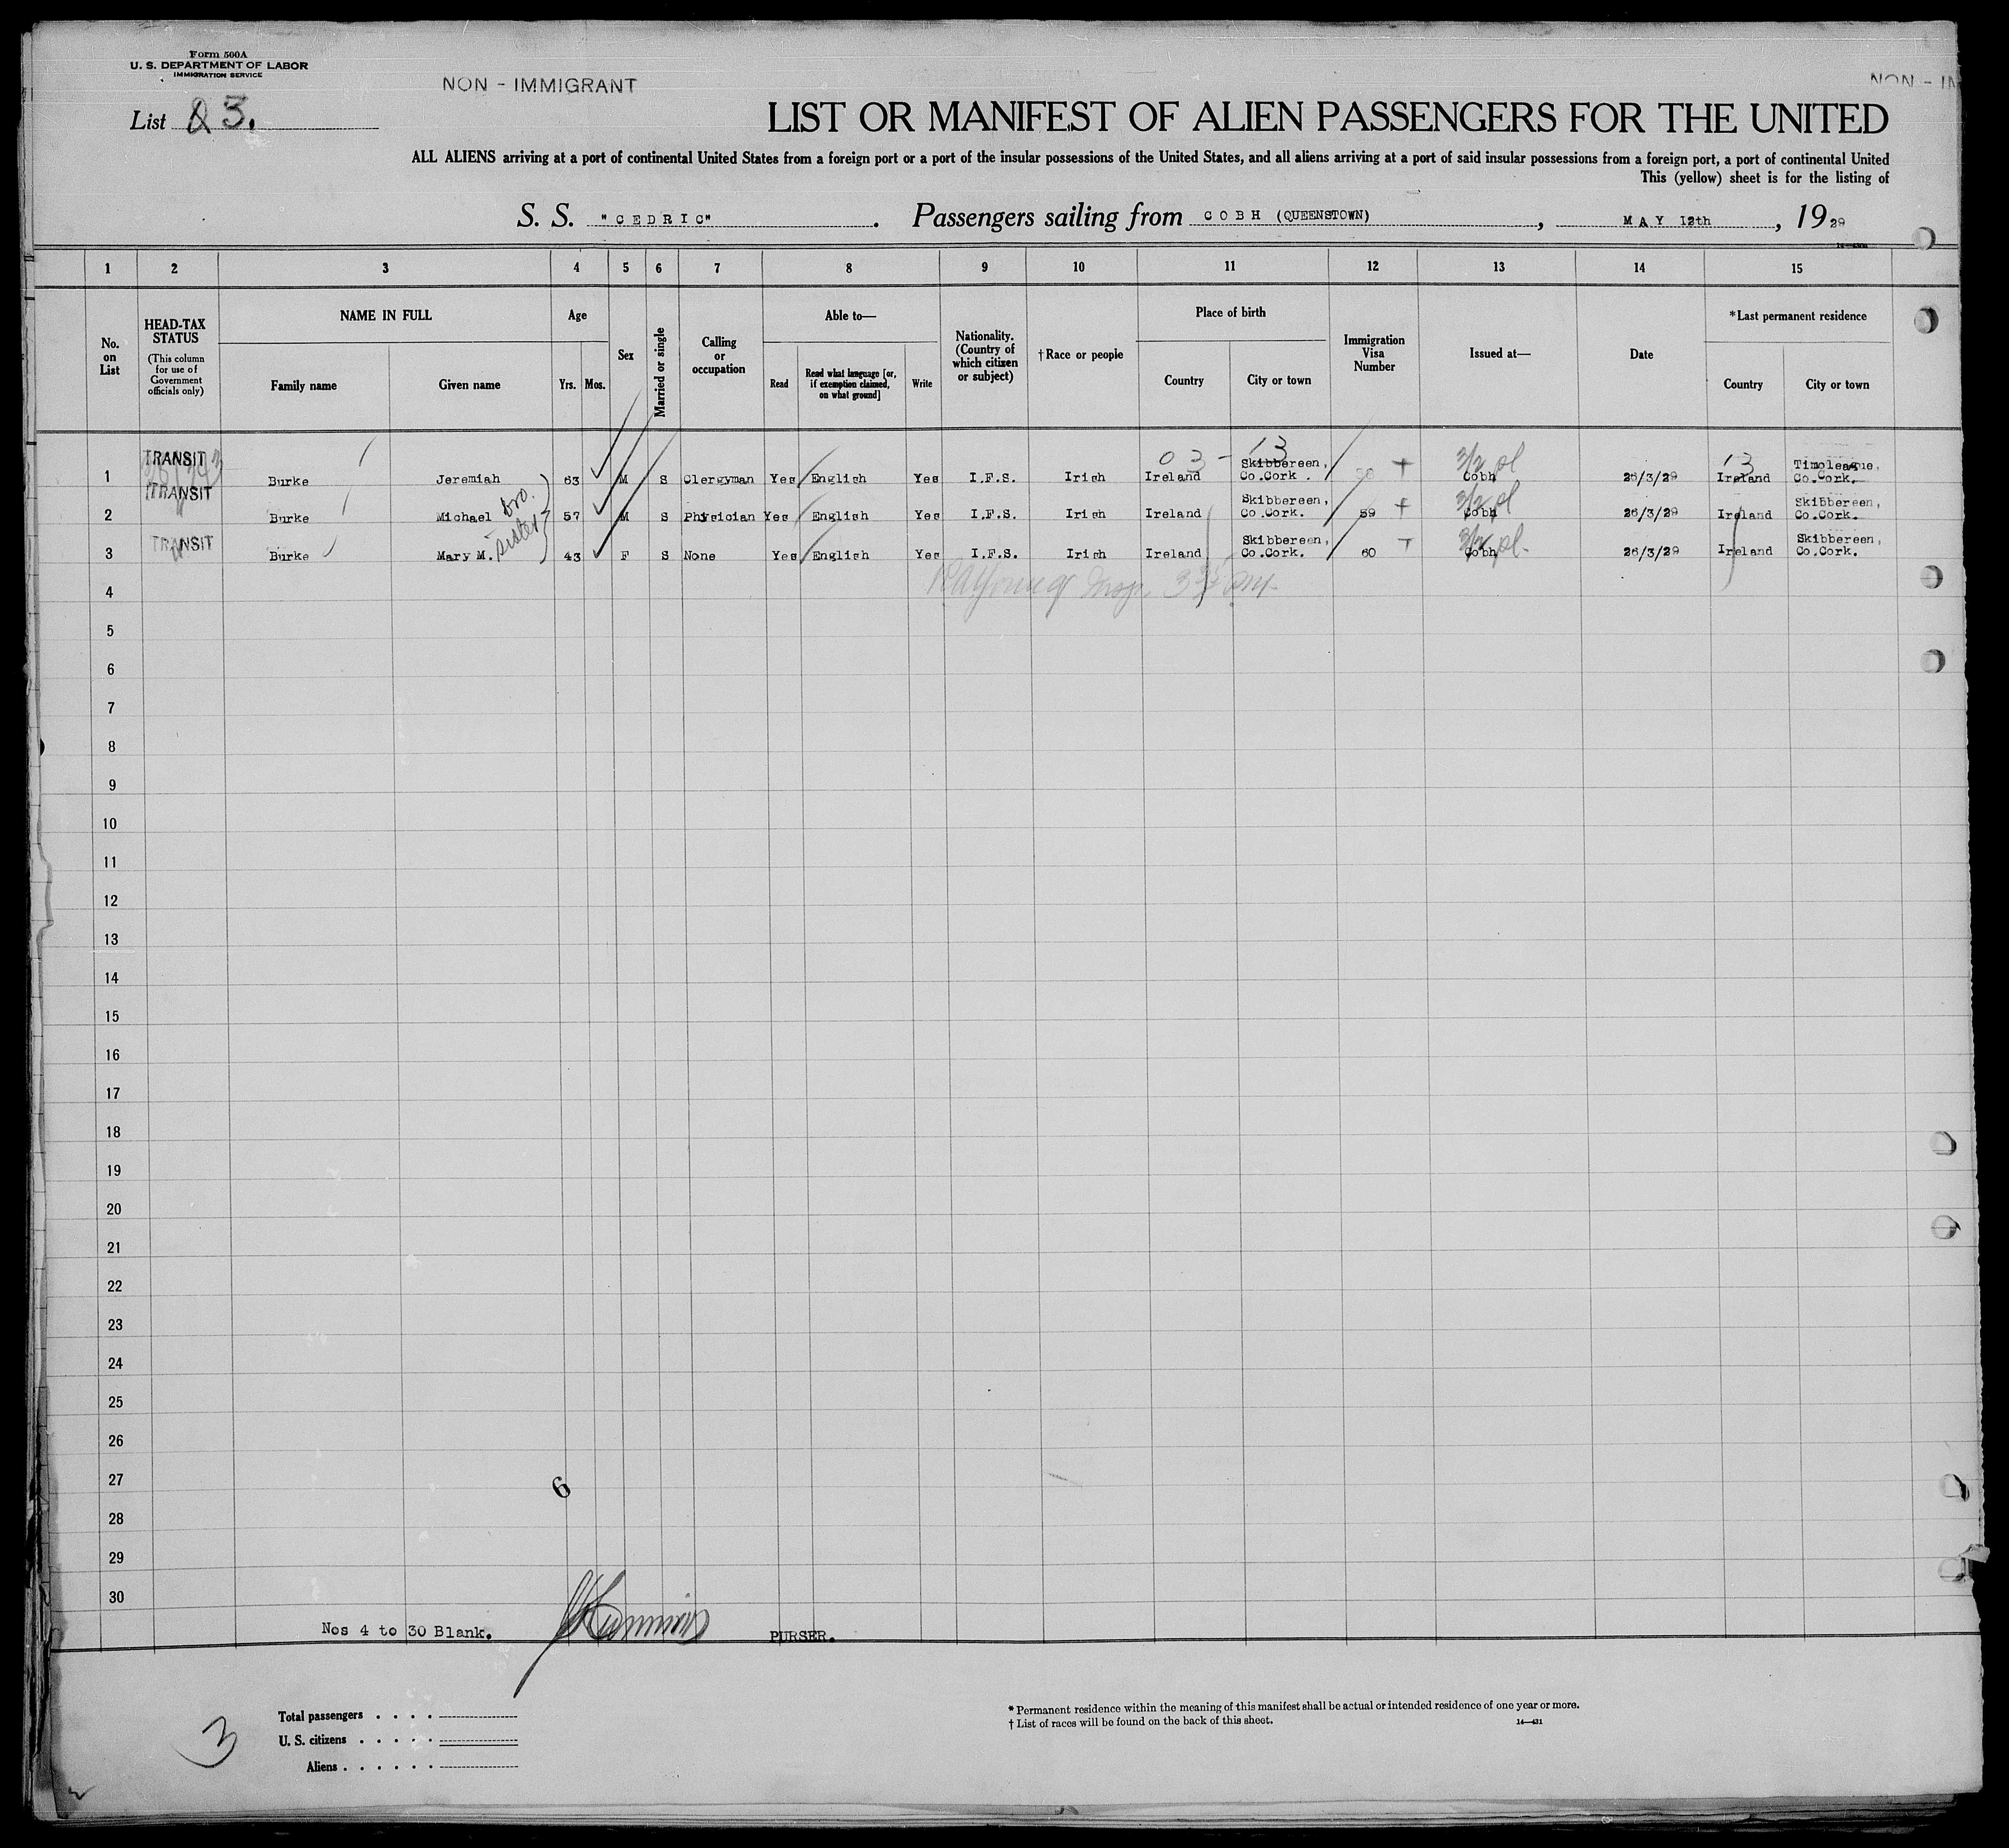 Form 500A
U. S. DEPARTMENT OF LABOR
IMMIGRATION SERVICE
NON - IMMIGRANT
NON - IM
List 3.
LIST OR MANIFEST OF ALIEN PASSENGERS FOR THE UNITED
ALL ALIENS arriving at a port of continental United States from a foreign port or a port of the insular possessions of the United States, and all aliens arriving at a port of said insular possessions from a foreign port, a port of continental United
This (yellow) sheet is for the listing of
S. S. "CEDRIC". Passengers sailing from COBH (QUEENSTOWN), MAY 12th, 1929
1 2 3 4 5 6 7 8 9 10 11 12 13 14 15
No. on List
HEAD-TAX STATUS (This column for use of Government officials only)
NAME IN FULL
Family name Given name
Age
Yrs. Mos.
Sex
Married or single
Calling or occupation
Able to—
Read
Read what language [or, if exemption claimed, on what ground]
Write
Nationality. (Country of which citizen or subject)
†Race or people
Place of birth
Country City or town
Immigration Visa Number
Issued at—
Date
*Last permanent residence
Country City or town
03 - 13 13
1 TRANSIT Burke Jeremiah 63 M S Clergyman Yes English Yes I.F.S. Irish Ireland Skibbereen, Co.Cork. Cobh 26/3/29 Ireland Timoleague, Co.Cork.
2 TRANSIT Burke Michael bro. 57 M S Physician Yes English Yes I.F.S. Irish Ireland Skibbereen, Co.Cork. 59 Cobh 26/3/29 Ireland Skibbereen, Co.Cork.
3 TRANSIT Burke Mary M. sister 43 F S None Yes English Yes I.F.S. Irish Ireland Skibbereen, Co.Cork. 60 Cobh 26/3/29 Ireland Skibbereen, Co.Cork.
4
5
6
7
8
9
10
11
12
13
14
15
16
17
18
19
20
21
22
23
24
25
26
27
6
28
29
30
Nos 4 to 30 Blank. PURSER.
Total passengers . . . .
U. S. citizens . . . . .
Aliens . . . . . .
3
* Permanent residence within the meaning of this manifest shall be actual or intended residence of one year or more.
† List of races will be found on the back of this sheet. 14—431